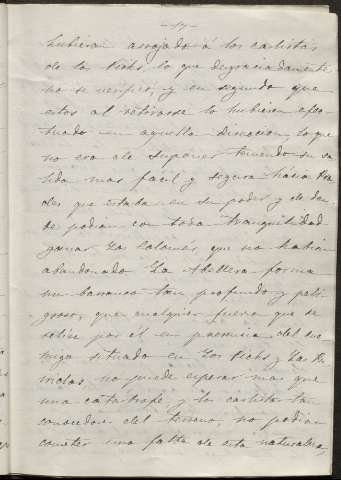 -17-
hubieran arrojado á los carlistas
de los Pichs, lo que desgraciadamente
no se verificó, y en segundo que
estos al retirarse lo hubieran efec
tuado en aquella direccion, lo que
no era de suponer teniendo su sa
lida mas fácil y segura hácia
que estaba en su poder y de don
de podian con toda tranquilidad
ganar La que no habian
abandonado La Atellera forma
un barranco tan profundo y peli
groso, que cualquier fuerza que se
retire por él en presencia del ene
migo situado en Los Pichs y Las
no puede esperar mas que
una catástrofe, y los carlistas tan
conocedores del terreno, no podian
cometer una falta de esta naturaleza,